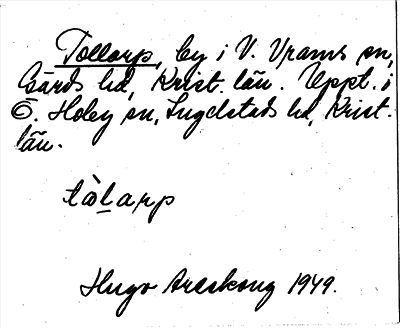 Tollarp, by i V. Vrams sn,
Gärds hd, Krist. län. Uppt. i
Ö. Hoby sn, Ingelstads hd, Krist.
län.
tàlarp
Hugo Areskoug 1949.